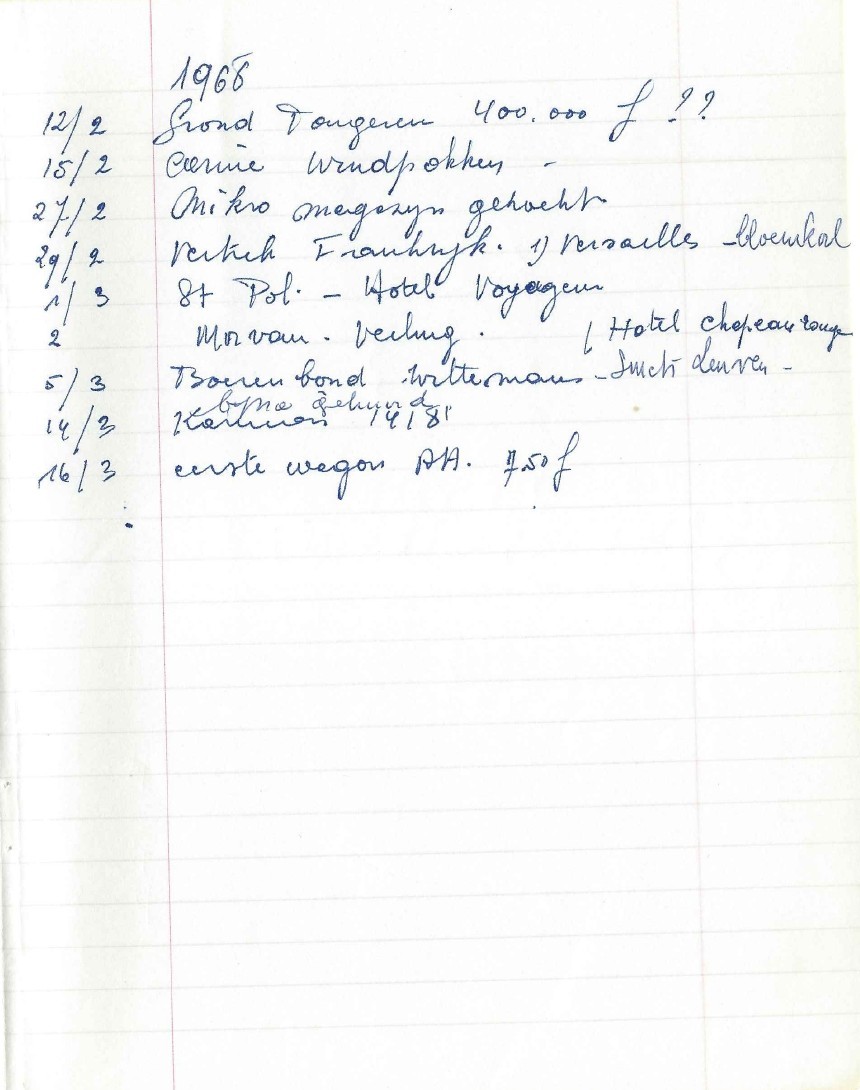 1968
12/2 Grond Tongeren 400.000 f ??
15/2 Carine Windpokken -
27/2 Mikro magazyn gekocht
29/2 Vertrek Frankryk. 1) Versailles - bloemkool
1/3 St Pol. - Hotel Voyageur
2 Morvan. Veiling. ( Hotel chapeau rouge
5/3 Boerenbond Wittemans - Smets Leuven -
byna gehuurd
14/3 14/8
16/3 eerste wagon AA. 7.50 f